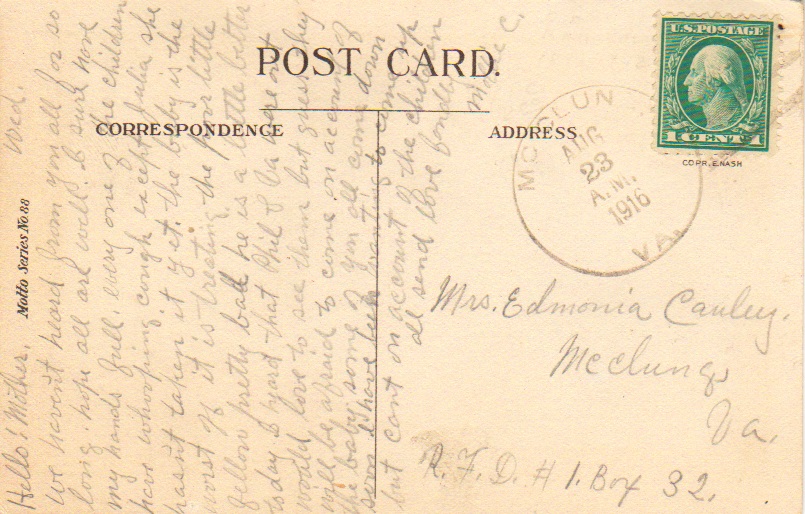 POST CARD.
CORRESPONDENCE
ADDRESS
U.S. POSTAGE
1 CENT 1
COPR. E. NASH
McCLUN
AUG
23
A.M.
1916
VA.
Motto Series No 88
Wed.
Hello! Mother.
We havent heard from you all for so
long. hope all are well. I sure have
my hands full. every one of the children
have whooping cough except Julia she
hasnt taken it yet. the baby is the
worst of it is treating the poor little
fellow pretty bad he is a little better
today. I heard that Phil & Lu were out
would love to see them but guess they
will be afraid to come on account of
the baby. some of you all come down
soon I have been wanting to come up
but cant on account of the children
all send love fondly
C.
Mrs. Edmonia Cauley.
McClung
Va.
R. F. D. # 1. Box 32.